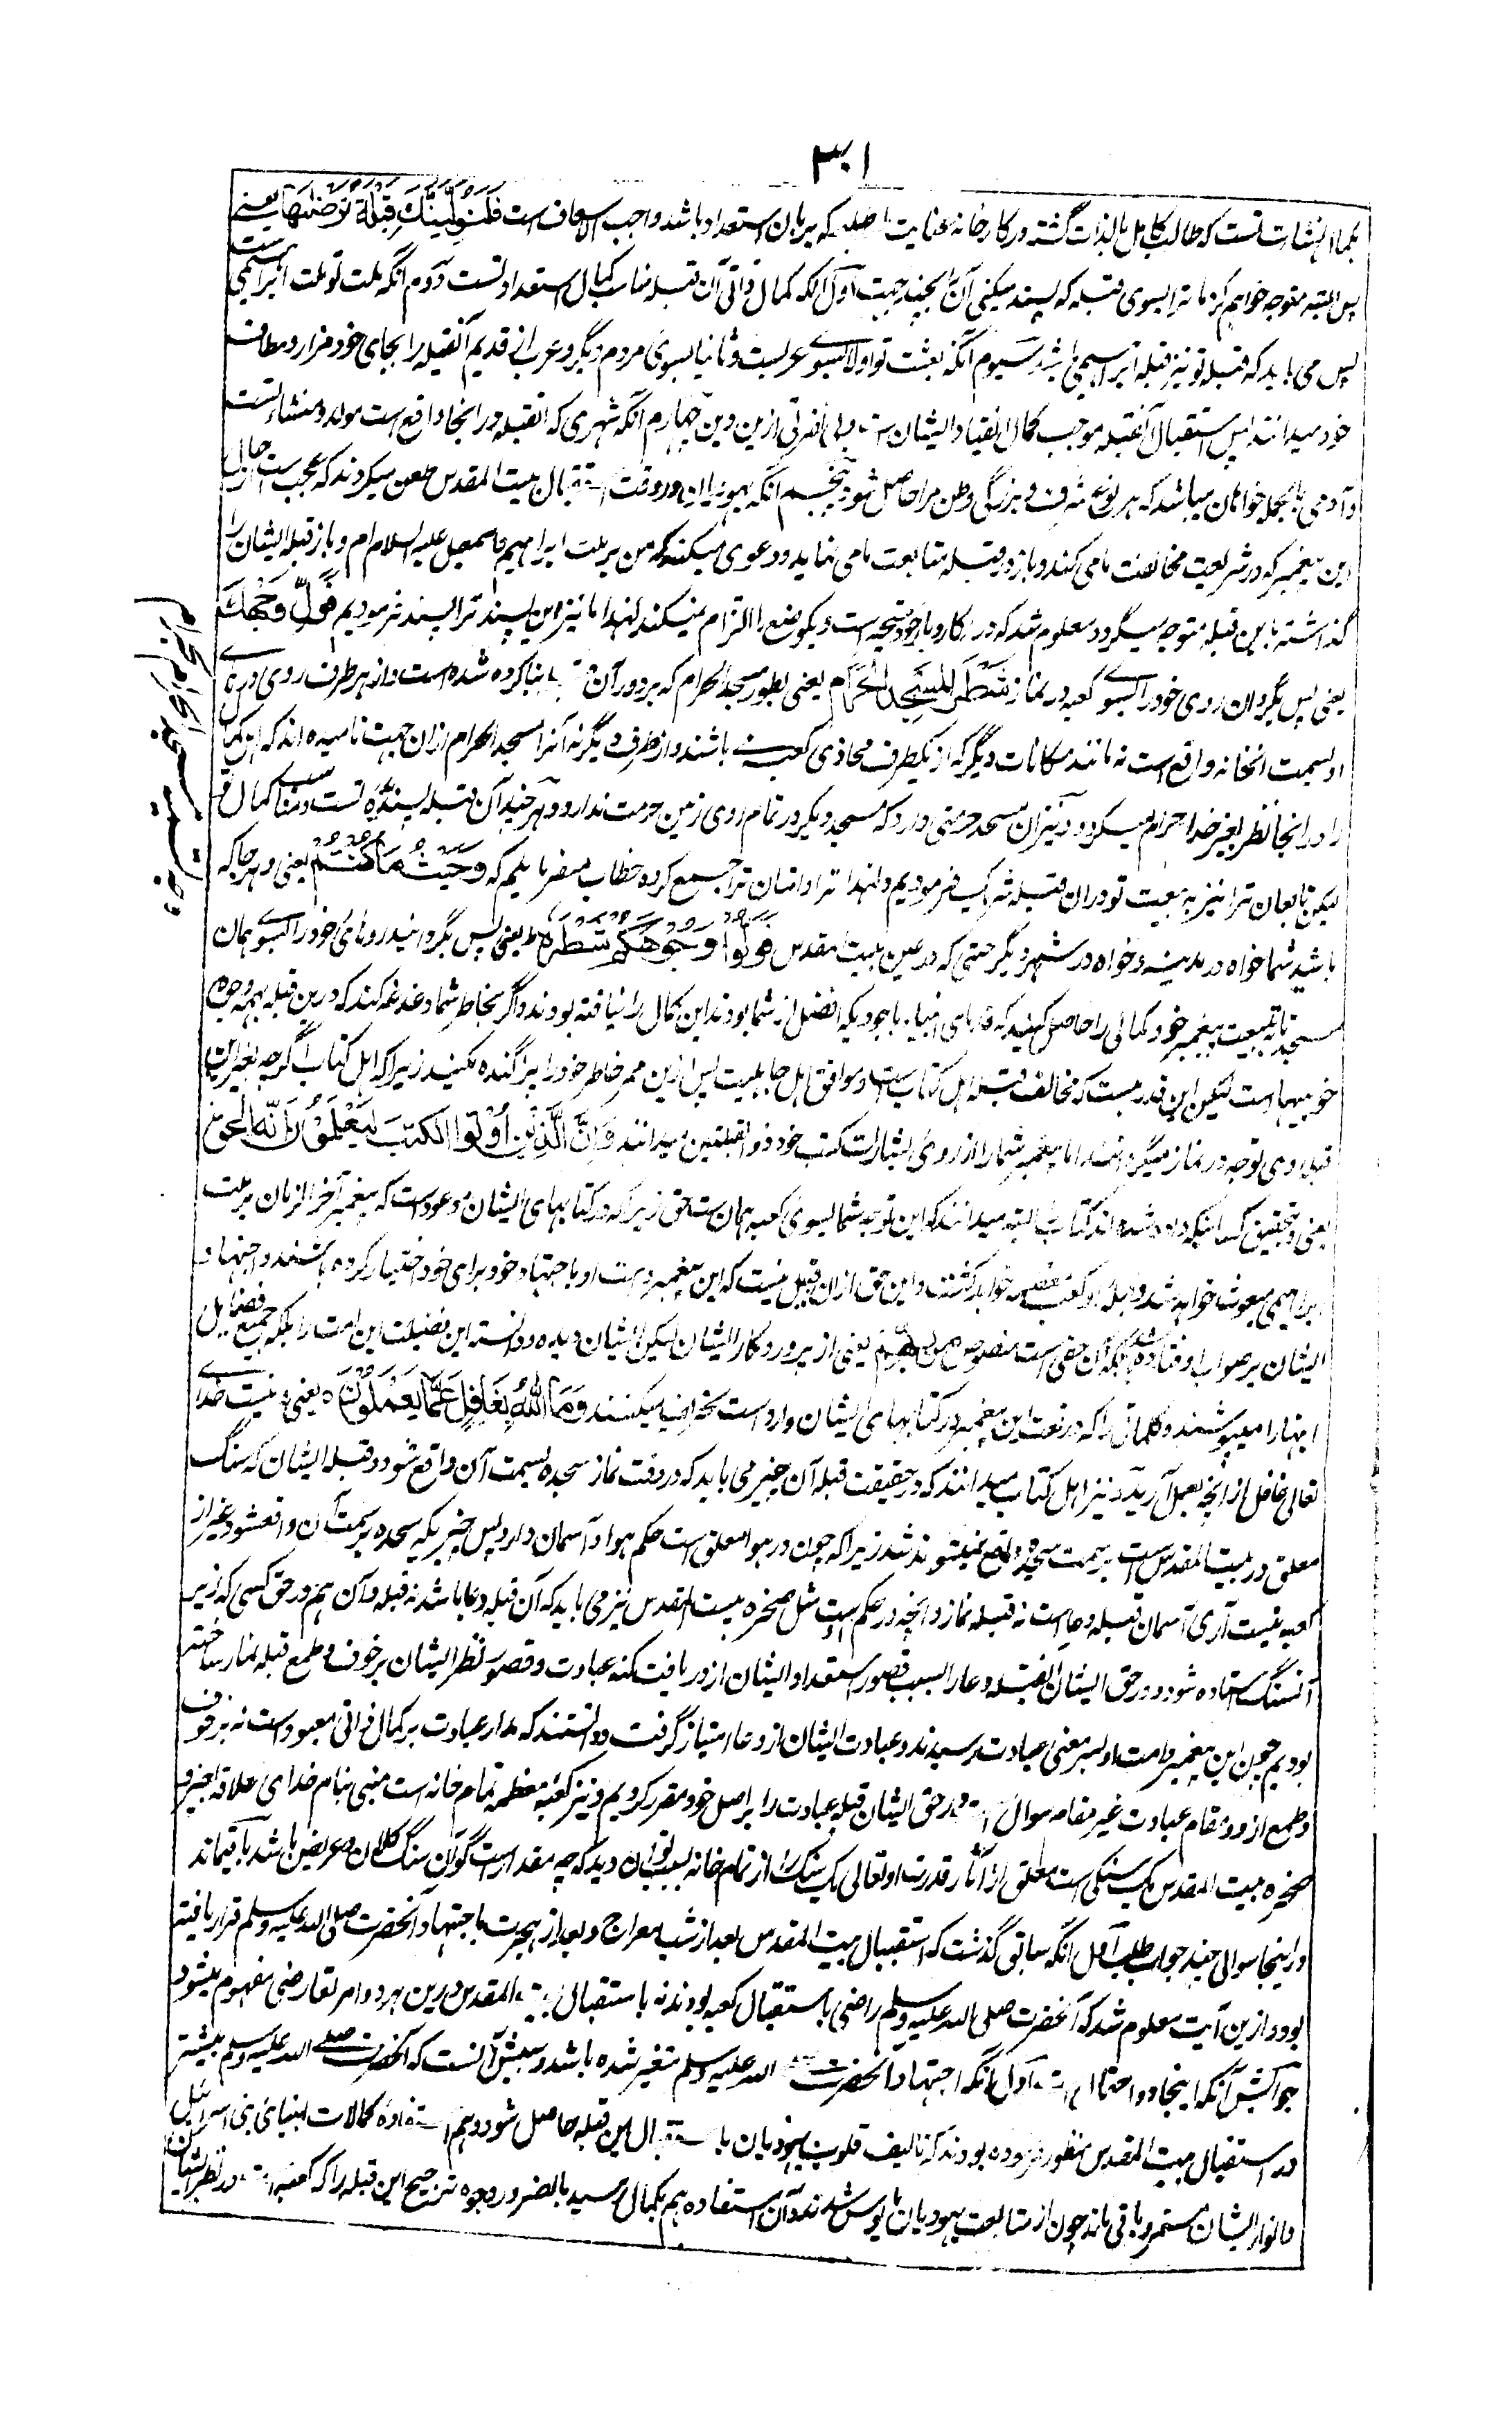 ۳۰۱
بکمال بشارت تست که طالب کامل بالذات گشته در کارخانه عنایت که بزبان استعداد باشد واجب الاسعاف است فَلَنُوَلِّيَنَّكَ قِبْلَةً تَرْضٰىهَا یعنی
پس البته متوجه خواهیم کرد ما ترا بسوی قبله که پسند میکنی آن را بچند جهت اول آنکه کمال ذاتی آن قبله مناسب کمال استعداد تست دوم آنکه ملت تو ملت ابراهیمی است
پس می باید که قبله تو نیز قبله ابراهیمی باشد سیوم آنکه بعثت تو اولا بسوی عرب است و ثانیا بسوی مردم دیگر و عرب از قدیم آنقبله را بجای خود مزار و مطاف
خود میدانند پس استقبال آنقبله موجب کمال انقیاد ایشان ست و بی نفرتی ازین دین چهارم آنکه شهری که آنقبله در آنجا واقع است مولد و منشاء تست
و آدمی بالجمله خواهان میباشد که هر نوع شرف و بزرگی وطن مرا حاصل شود پنجم آنکه یهودیان در وقت استقبال بیت المقدس طعن میکردند که عجب ست حال
این پیغمبر که در شریعت مخالفت ما می کند و باز در قبله متابعت ما می نماید و دعوی میکند که من بر ملت ابراهیم و اسمعیل علیه السلام ام و باز قبله ایشان را
گذاشته باین قبله متوجه میگردد معلوم شد که در کار و بار خود متحیر است و یک وضع را التزام نمیکند لهذا ما نیز این پسند ترا پسند فرمودیم فَوَلِّ وَجْهَكَ
یعنی پس بگردان روی خود را بسوی کعبه در نماز شَطْرَ الْمَسْجِدِ الْحَرَامِ یعنی بطور مسجد الحرام که بر دور آن بنا کرده شده است و از هر طرف روی در
او بسمت آنخانه واقع است نه مانند مکانات دیگر که از یکطرف محاذی کعبه باشند و از طرف دیگر نه آنرا مسجد الحرام ازان جهت نامیده اند که
را در آنجا نظر بغیر خدا حرام میگردد و نیز آن مسجد حرمتی دارد که مسجد دیگر در تمام روی زمین حرمت ندارد و هر چند آن قبله پسندیده تست و مناسب کمال تو
لیکن تابعان ترا نیز به تبعیت تو دران قبله شریک فرمودیم و لهذا ترا و امتان ترا جمع کرده خطاب میفرمایم که وَحَيْثُ مَا كُنْتُمْ یعنی و هر جا که
باشید شما خواه در مدینه و خواه در شهر دیگر حتی که در عین بیت مقدس فَوَلُّوْا وُجُوْهَكُمْ شَطْرَهٗ یعنی پس بگردانید روهای خود را بسوی همان
مسجد تا به تبعیت پیغمبر خود کمالی را حاصل کنید که انبیاء باوجودیکه افضل از شما بودند این کمال را نیافته بودند و اگر بخاطر شما دغدغه کند که درین قبله بهمه وجوه
خوبیهاست لیکن این قدر هست که مخالف قبله اهل کتاب است و موافق اهل جاهلیت پس ازین ممر خاطر خود را پراگنده نکنید زیرا که اهل کتاب اگرچه بغیر این
قبله روی توجه در نماز میگردانند اما پیغمبر شما را از روی بشارات کتب خود ذو القبلتین میدانند وَاِنَّ الَّذِيْنَ اُوْتُوا الْكِتٰبَ لَيَعْلَمُوْنَ اَنَّهُ الْحَقُّ
یعنی و بتحقیق کسانیکه داده شده اند کتاب را البته میدانند که این توجه شما بسوی کعبه همان ست حق زیرا که در کتابهای ایشان موعود است که پیغمبر آخر الزمان بر ملت
ابراهیمی مبعوث خواهد شد و قبله او کعبه خواهد گشت و این حق ازان قبیل نیست که این پیغمبر و امت او باجتهاد خود برای خود اختیار کرده باشند و اجتهاد
ایشان بر صواب افتاده باشد بلکه آن حقی است منصوص مِنْ رَّبِّهِمْ یعنی از پروردگار ایشان لیکن ایشان دیده و دانسته این فضیلت این امت را بلکه جمیع فضایل
اینها را میپوشند و کلماتی را که در نعت این پیغمبر در کتابهای ایشان وارد است تحریف میکنند وَمَا اللّٰهُ بِغَافِلٍ عَمَّا يَعْمَلُوْنَ ۵ یعنی و نیست خدای
تعالی غافل از آنچه بعمل آرید و نیز اهل کتاب میدانند که در حقیقت قبله آن چیز می باید که در وقت نماز سجده بسمت آن واقع شود و قبله ایشان که سنگ
معلق در بیت المقدس است بر سمت سجده واقع نمیتواند شد زیرا که چون در هوا معلق است حکم هوا و آسمان دارد پس چیزیکه سجده بر سمت آن واقعشود غیر از
کعبه نیست آری آسمان قبله دعا ست نه قبله نماز و آنچه در حکم اوست مثل صخره بیت المقدس نیز می باید که آن قبله دعا باشد نه قبله و آن هم در حق کسی که زیر
آنسنگ استاده شود و در حق ایشان آنقبله دعا را بسبب قصور استعداد ایشان از دریافت کنه عبادت و قصر نظر ایشان بر خوف و طمع قبله نماز ساخته
بودیم چون این پیغمبر و امت او بسر معنی عبادت رسیدند و عبادت ایشان از دعا امتیاز گرفت و دانستند که مدار عبادت بر کمال ذاتی معبود است نه بر خوف
و طمع ازو و مقام عبادت غیر مقام سوال است در حق ایشان قبله عبادت را بر اصل خود مقرر کردیم و نیز کعبه معظمه تمام خانه است مبنی بنام خدای علاقه
صخره بیت المقدس یک سنگی است معلق از آثار قدرت او تعالی یک سنگ را از تمام خانه توان دید که چه مقدار است گو آن سنگ کلان و عریض باشد باقیماند
در اینجا سوالی چند جواب طلب اول آنکه سابق گذشت که استقبال بیت المقدس بعد از شب معراج و بعد از هجرت باجتهاد آنحضرت صلی الله علیه وسلم قرار یافته
بود و ازین آیت معلوم شد که آنحضرت صلی الله علیه وسلم راضی باستقبال کعبه بودند نه باستقبال بیت المقدس درین هر دو امر تعارضی مفهوم میشود
جوابش آنکه اینجا دو احتمال است اول آنکه اجتهاد آنحضرت صلی الله علیه وسلم متغیر شده باشد و سببش آنست که آنحضرت صلی الله علیه وسلم بیشتر
در استقبال بیت المقدس منظور فرموده بودند که تالیف قلوب یهودیان باستقبال این قبله حاصل شود و هم استفاده کمالات انبیای بنی اسرائیل
و انوار ایشان مستمر و باقی ماند چون از متابعت یهودیان مایوس شدند و آن استفاده هم بکمال رسید بالضرور وجوه ترجیح این قبله را که کعبه است در نظر ایشان
وجه تسمیه مسجد الحرام بحرام